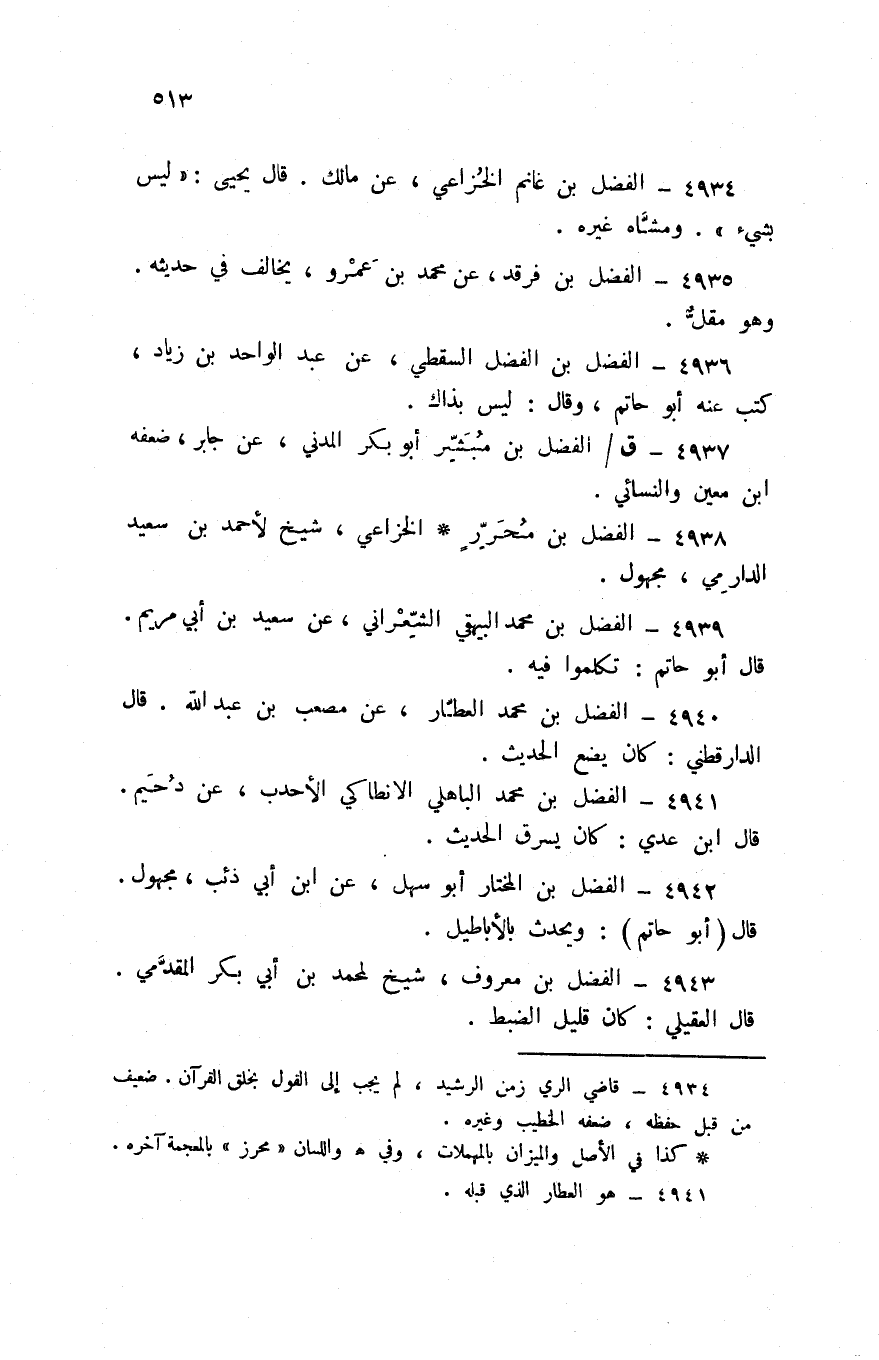 ٥١٣
٤٩٣٤ – الفضل بن غانم الخُزاعي ، عن مالك . قال يحيى : « ليس
بشيء » . ومشَّاه غيره .
٤٩٣٥ – الفضل بن فرقد ، عن محمد بن عَمْرو ، يخالف في حديثه .
وهو مقلٌّ .
٤٩٣٦ – الفضل بن الفضل السقطي ، عن عبد الواحد بن زياد ،
كتب عنه أبو حاتم ، وقال : ليس بذاك .
٤٩٣٧ – ق / الفضل بن مُبَشِّر أبو بكر المدني ، عن جابر ، ضعفه
ابن معين والنسائي .
٤٩٣٨ – الفضل بن مُحَرِّرٍ * الخزاعي ، شيخ لأحمد بن سعيد
الدارِمي ، مجهول .
٤٩٣٩ – الفضل بن محمد البيهقي الشِّعْراني ، عن سعيد بن أبي مريم .
قال أبو حاتم : تكلموا فيه .
٤٩٤٠ – الفضل بن محمد العطَّار ، عن مصعب بن عبد الله . قال
الدارقطني : كان يضع الحديث .
٤٩٤١ – الفضل بن محمد الباهلي الانطاكي الأحدب ، عن دُحَيم .
قال ابن عدي : كان يسرق الحديث .
٤٩٤٢ – الفضل بن المختار أبو سهل ، عن ابن أبي ذئب ، مجهول .
قال ( أبو حاتم ) : ويحدث بالأباطيل .
٤٩٤٣ – الفضل بن معروف ، شيخ لمحمد بن أبي بكر المقدَّمي .
قال العقيلي : كان قليل الضبط .
٤٩٣٤ – قاضي الري زمن الرشيد ، لم يجب إلى القول بخلق القرآن . ضعيف
من قبل حفظه ، ضعفه الخطيب وغيره .
* كذا في الأصل والميزان بالمهملات ، وفي ه واللسان « محرز » بالمعجمة آخره .
٤٩٤١ – هو العطار الذي قبله .